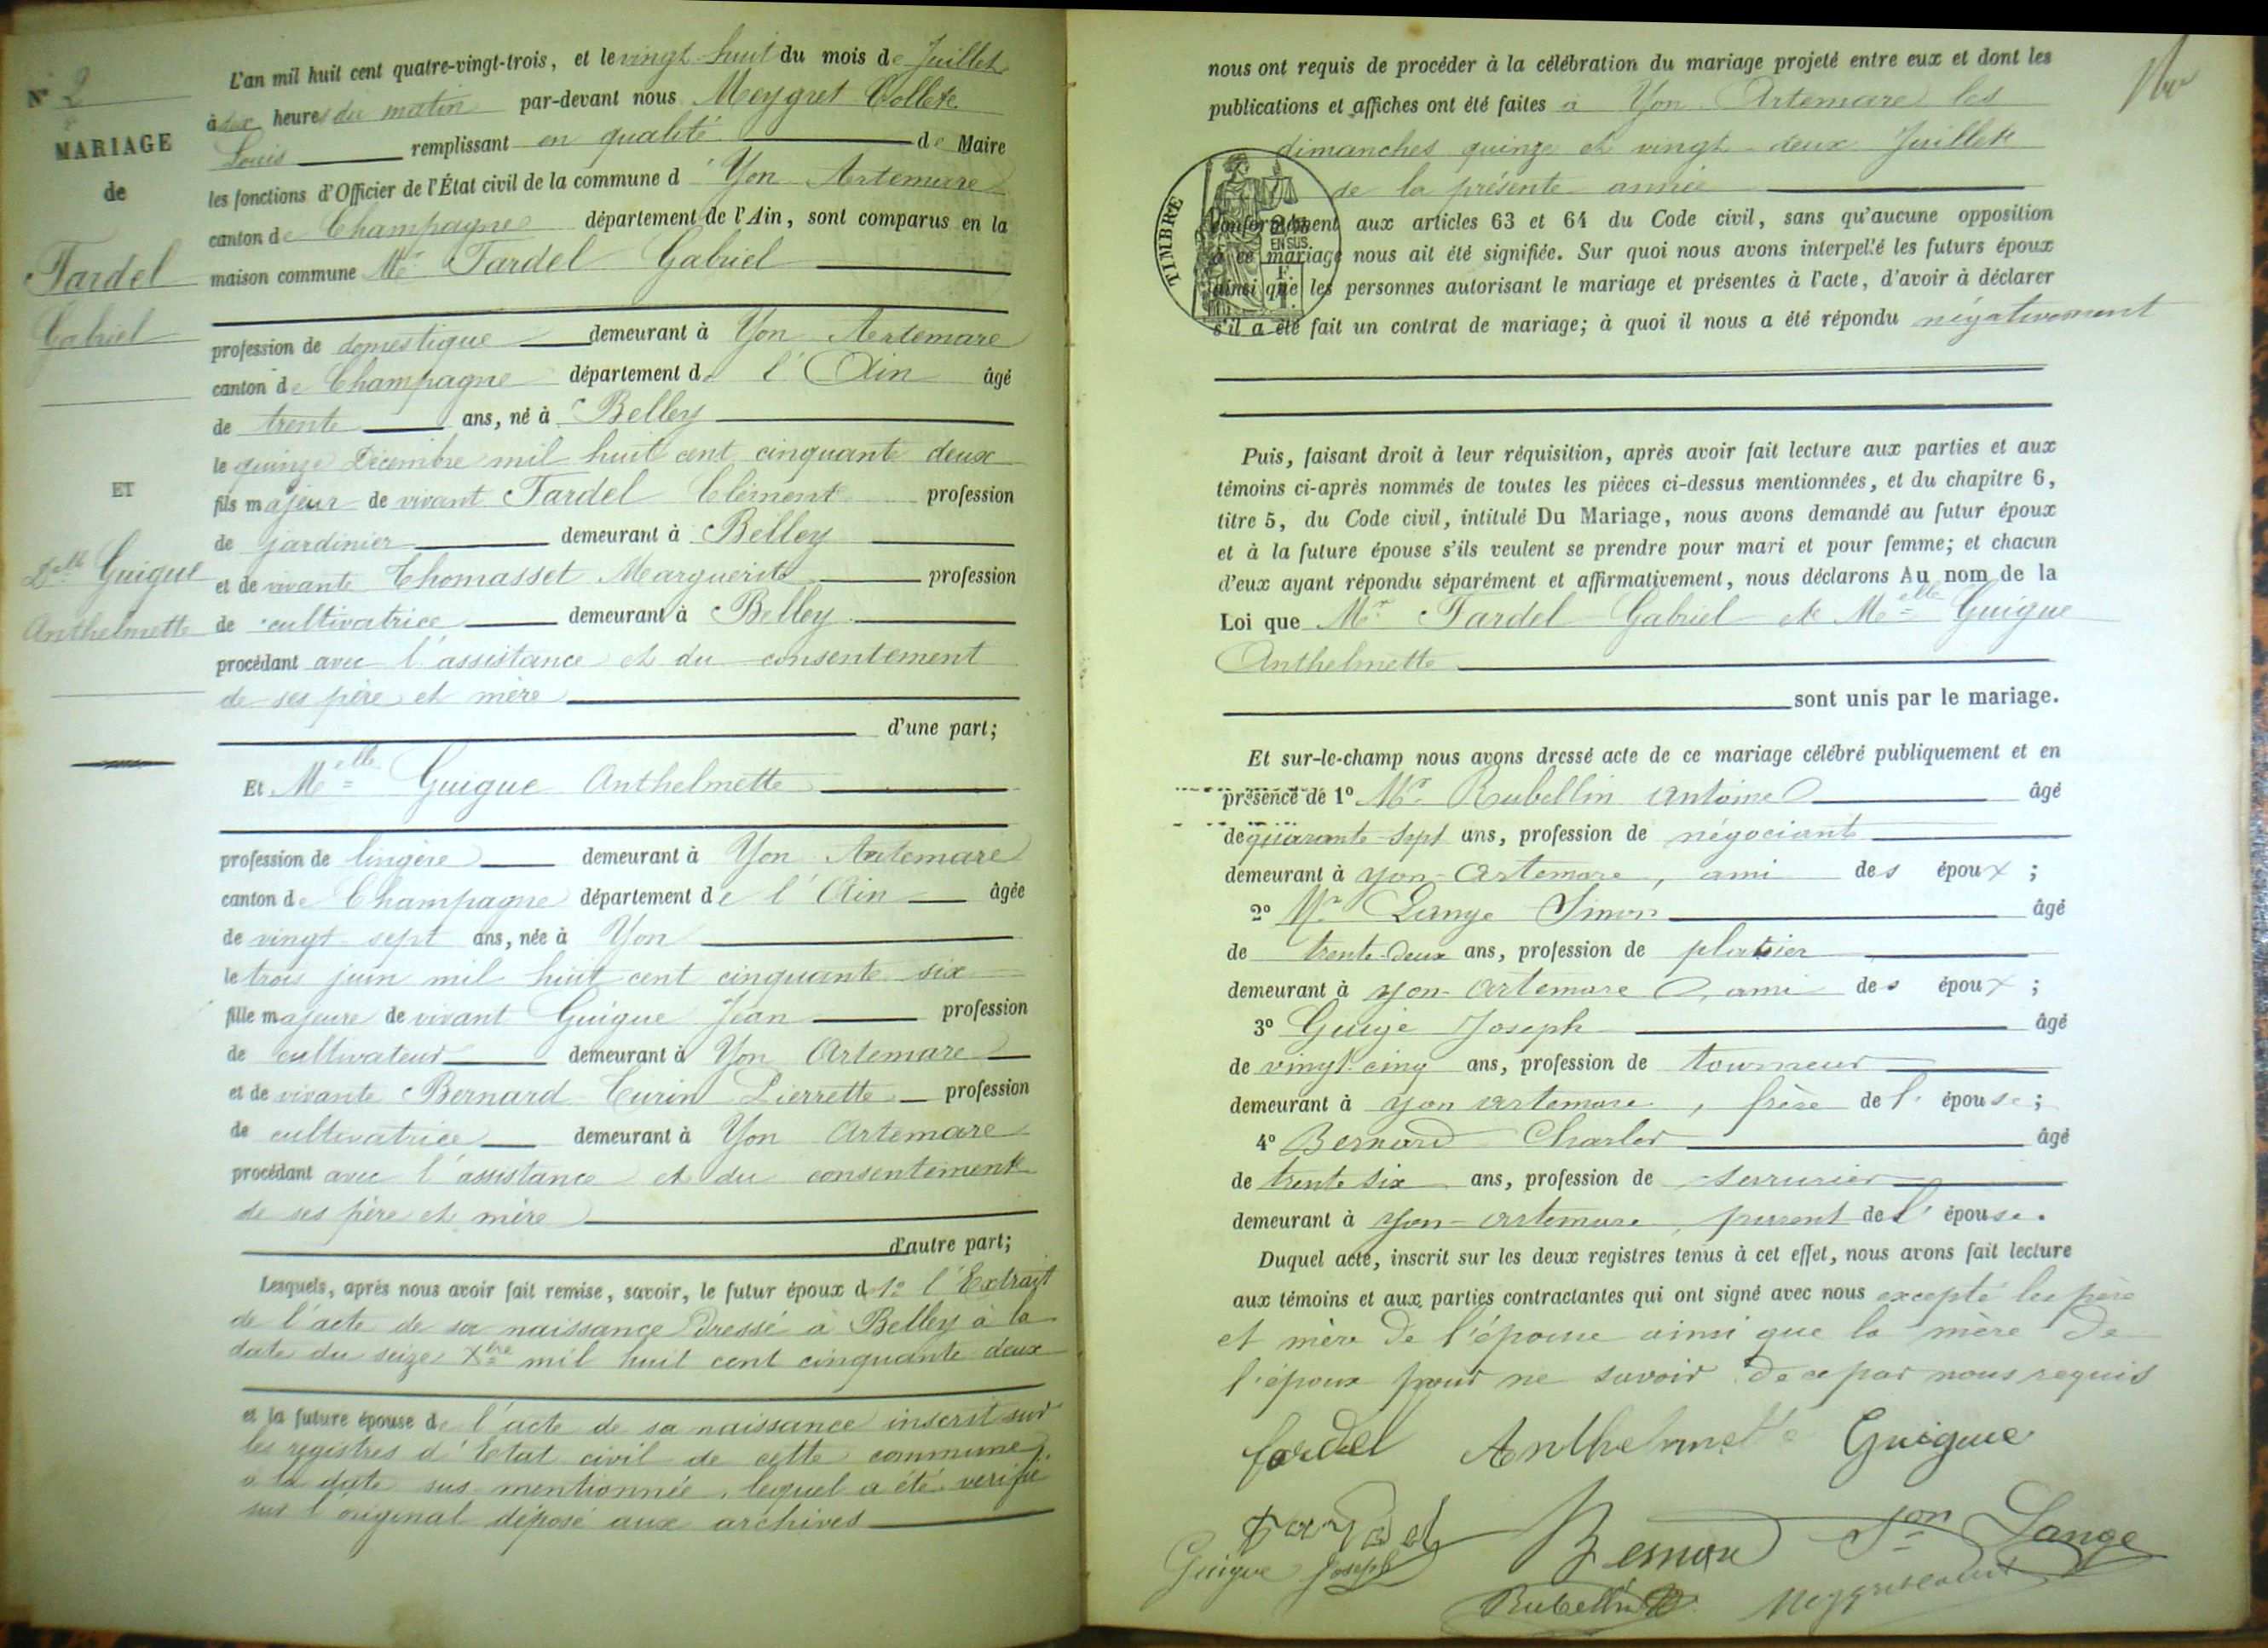 N° 2
MARIAGE
de
Tardel
Gabriel
ET
Delle Guigue
Anthelmette
L'an mil huit cent quatre-vingt-trois, et le vingt-huit du mois de Juillet
à six heures du matin par-devant nous Meygret Collet
Louis remplissant en qualité de Maire
les fonctions d'Officier de l'État civil de la commune d'Yon Artemare
canton de Champagne département de l'Ain, sont comparus en la
maison commune Mr Tardel Gabriel
profession de domestique demeurant à Yon Artemare
canton de Champagne département de l'Ain âgé
de trente ans, né à Belley
le quinze Décembre mil huit cent cinquante deux
fils majeur de vivant Tardel Clément profession
de jardinier demeurant à Belley
et de vivante Thomasset Marguerite profession
de cultivatrice demeurant à Belley
procédant avec l'assistance et du consentement
de ses père et mère
d'une part;
Et Melle Guigue Anthelmette
profession de lingère demeurant à Yon Artemare
canton de Champagne département de l'Ain âgée
de vingt-sept ans, née à Yon
le trois juin mil huit cent cinquante six
fille majeure de vivant Guigue Jean profession
de cultivateur demeurant à Yon Artemare
et de vivante Bernard Curin Pierrette profession
de cultivatrice demeurant à Yon Artemare
procédant avec l'assistance et du consentement
de ses père et mère
d'autre part;
Lesquels, après nous avoir fait remise, savoir, le futur époux d 1° l'Extrait
de l'acte de sa naissance Dressé à Belley à la
date du seize Xbre mil huit cent cinquante deux
et la future épouse de l'acte de sa naissance inscrit sur
les registres d'Etat civil de cette commune,
à la date sus-mentionnée, lequel a été vérifié
sur l'original déposé aux archives
nous ont requis de procéder à la célébration du mariage projeté entre eux et dont les
publications et affiches ont été faites à Yon Artemare les
dimanches quinze et vingt-deux Juillet
de la présente année
TIMBRE
EN SUS.
Conformément aux articles 63 et 64 du Code civil, sans qu'aucune opposition
à ce mariage nous ait été signifiée. Sur quoi nous avons interpellé les futurs époux
ainsi que les personnes autorisant le mariage et présentes à l'acte, d'avoir à déclarer
s'il a été fait un contrat de mariage; à quoi il nous a été répondu négativement
Puis, faisant droit à leur réquisition, après avoir fait lecture aux parties et aux
témoins ci-après nommés de toutes les pièces ci-dessus mentionnées, et du chapitre 6,
titre 5, du Code civil, intitulé Du Mariage, nous avons demandé au futur époux
et à la future épouse s'ils veulent se prendre pour mari et pour femme; et chacun
d'eux ayant répondu séparément et affirmativement, nous déclarons Au nom de la
Loi que Mr Tardel Gabriel et Melle Guigue
Anthelmette
sont unis par le mariage.
Et sur-le-champ nous avons dressé acte de ce mariage célébré publiquement et en
présence de 1° Mr Rubellin Antoine âgé
de quarante-sept ans, profession de négociant
demeurant à Yon-Artemare, ami des époux ;
2° Mr Lange Simon âgé
de trente-deux ans, profession de platrier
demeurant à Yon-Artemare, ami des époux ;
3° Guigue Joseph âgé
de vingt-cinq ans, profession de tourneur
demeurant à Yon Artemare, frère de l'épouse ;
4° Bernard Charles âgé
de trente six ans, profession de serrurier
demeurant à Yon-Artemare, parent de l'épouse.
Duquel acte, inscrit sur les deux registres tenus à cet effet, nous avons fait lecture
aux témoins et aux parties contractantes qui ont signé avec nous excepté les père
et mère de l'épouse ainsi que la mère de
l'époux pour ne savoir de ce par nous requis
fardel Anthelmette Guigue
Tardel Bernard Son Lange
Guigue Joseph
Rubellin